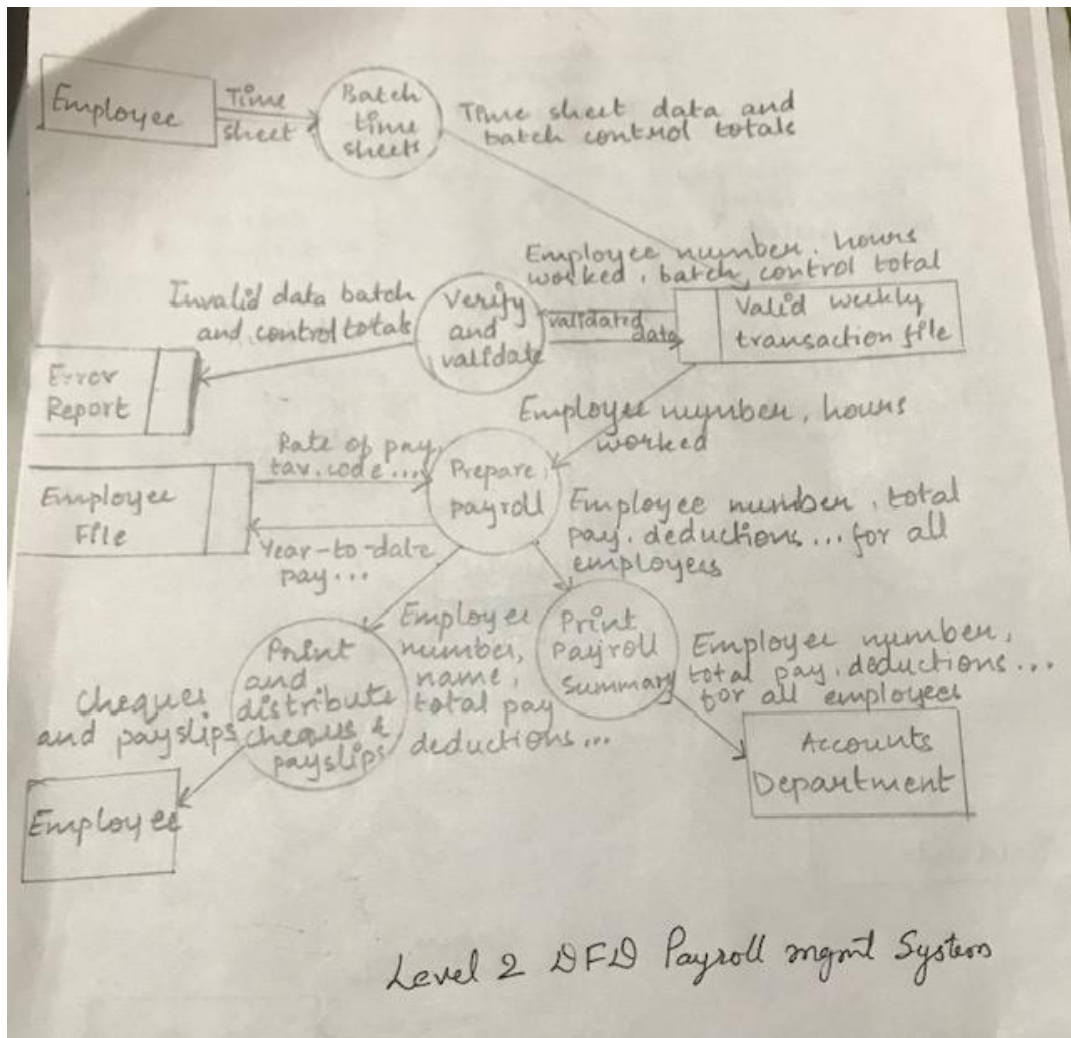 Employee
Time
sheet
Batch
time
sheets
Time sheet data and
batch control totals
Employee number, hours
worked, batch control total
Invalid data batch
and control totals
Verify
and
validate
validated
data
Valid weekly
transaction file
Error
Report
Employee number, hours
worked
Rate of pay,
tax.code....
Prepare
payroll
Employee
File
Year-to-date
pay...
Employee number, total
pay, deductions...for all
employees
Employee
number,
name,
total pay
deductions...
Print
Payroll
Summary
Employee number,
total pay, deductions...
for all employees
Print
and
distribute
cheques &
payslips
Cheques
and payslips
Accounts
Department
Employee
Level 2 DFD Payroll mgmt System